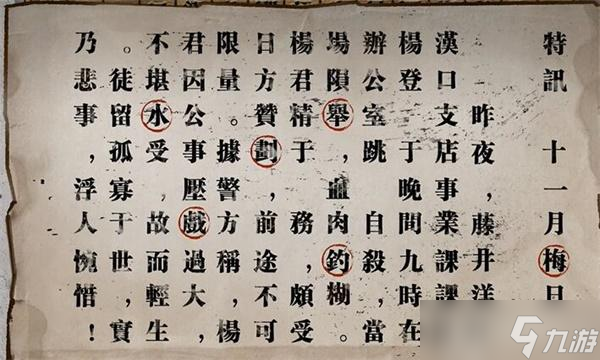 特訊 十一月梅日
昨夜,藤井洋
漢口支店事業課課
楊登 于晚間九時在
辦公室跳 自殺,當
場隕舉,血肉釣糊。
楊君精于 務,頗受
日方贊劃,前途,不可
限量。據警方稱,楊
君因公事壓戲過大,
不堪水受,故而輕生,
。徒留孤寡于世,實
乃悲事,浮人惋惜!
九游